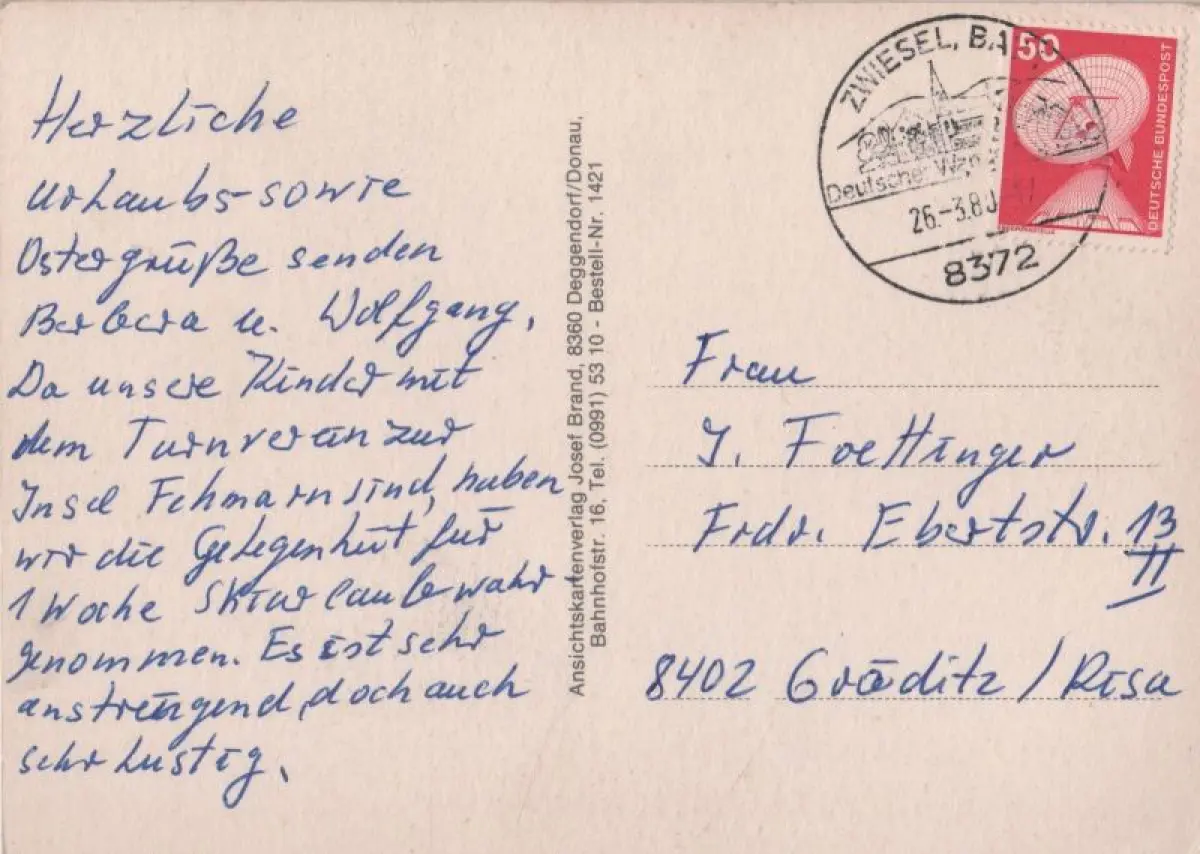 Herzliche
Urlaubs-sowie
Ostergrüße senden
Barbara u. Wolfgang.
Da unsere Kinder mit
dem Turnverein zur
Insel Fehmarn sind, haben
wir die Gelegenheit für
1 Woche Skiurlaub wahr
genommen. Es ist sehr
anstrengend, doch auch
sehr lustig.
Ansichtskartenverlag Josef Brand, 8360 Deggendorf/Donau,
Bahnhofstr. 16, Tel. (0991) 53 10 - Bestell-Nr. 1421
ZWIESEL, BA
Deutscher
26.-3.80
8372
50
DEUTSCHE BUNDESPOST
Frau
J. Foettinger
Frdr. Ebertstr. 13
II
8402 Gröditz/Risa